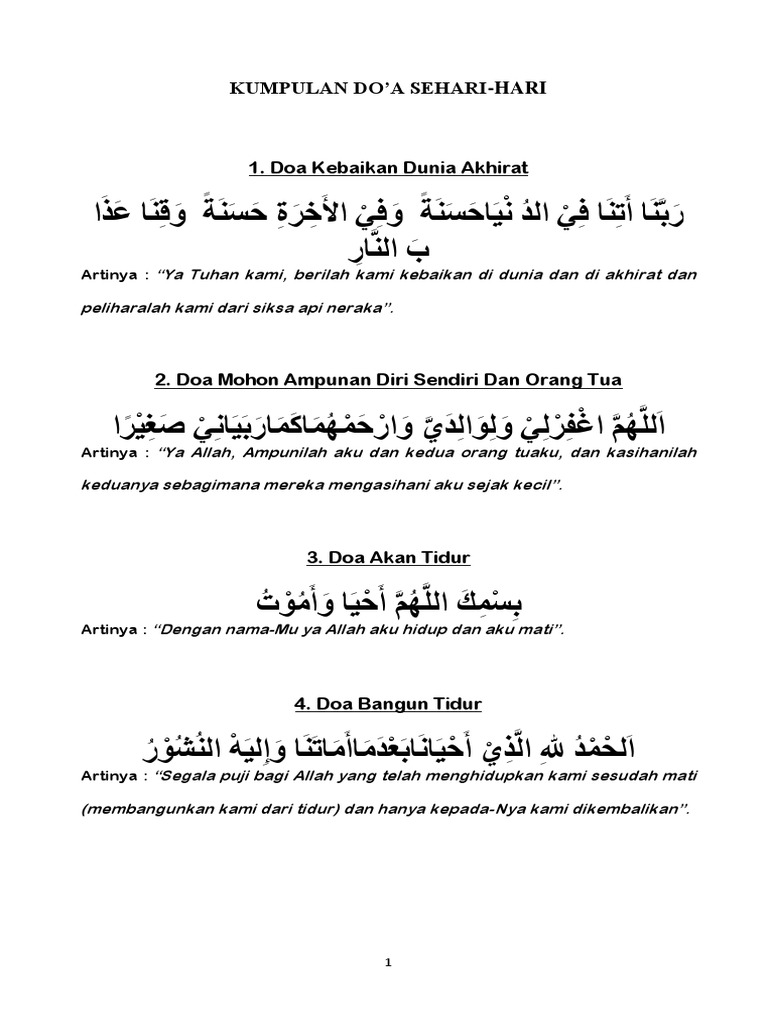 KUMPULAN DO’A SEHARI-HARI
1. Doa Kebaikan Dunia Akhirat
رَبَّنَا أَتِنَا فِيْ الدُ نْيَاحَسَنَةً وَفِيْ الأَخِرَةِ حَسَنَةً وَقِنَا عَذَا
بَ النَّارِ
Artinya : “Ya Tuhan kami, berilah kami kebaikan di dunia dan di akhirat dan
peliharalah kami dari siksa api neraka”.
2. Doa Mohon Ampunan Diri Sendiri Dan Orang Tua
اَللَّهُمَّ اغْفِرْلِيْ وَلِوَالِدَيَّ وَارْحَمْهُمَاكَمَارَبَيَانِيْ صَغِيْرًا
Artinya : “Ya Allah, Ampunilah aku dan kedua orang tuaku, dan kasihanilah
keduanya sebagimana mereka mengasihani aku sejak kecil”.
3. Doa Akan Tidur
بِسْمِكَ اللَّهُمَّ أَحْيَا وَأَمُوْتُ
Artinya : “Dengan nama-Mu ya Allah aku hidup dan aku mati”.
4. Doa Bangun Tidur
اَلحْمْدُ لِلهِ الَّذِيْ أَحْيَانَابَعْدَمَاأَمَاتَنَا وَإِليَهْ النُشُوْرُ
Artinya : “Segala puji bagi Allah yang telah menghidupkan kami sesudah mati
(membangunkan kami dari tidur) dan hanya kepada-Nya kami dikembalikan”.
1